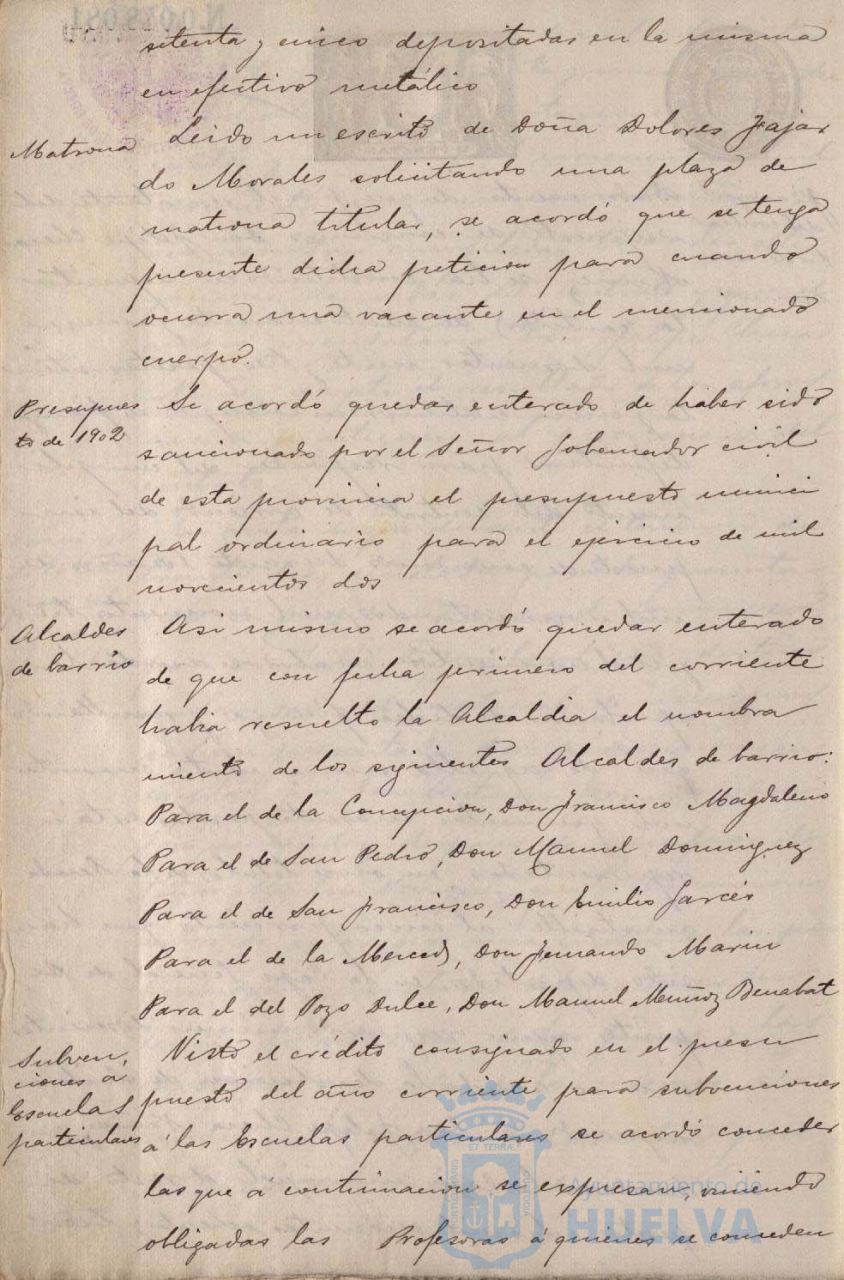 N.0.078.081
setenta y cinco depositadas en la misma
en efectivo metálico
Matrona
Leido un escrito de Doña Dolores Fajar
do Morales solicitando una plaza de
matrona titular, se acordó que se tenga
presente dicha peticion para cuando
ocurra una vacante en el mencionado
cuerpo.
Presupues
to de 1902
Se acordó quedar enterado de haber sido
sancionado por el Señor Gobernador civil
de esta provincia el presupuesto munici
pal ordinario para el ejercicio de mil
novecientos dos
Alcaldes
de barrio
Asi mismo se acordó quedar enterado
de que con fecha primero del corriente
habia resuelto la Alcaldia el nombra
miento de los siguientes Alcaldes de barrio:
Para el de la Concepcion, Don Francisco Magdaleno
Para el de San Pedro, Don Manuel Dominguez
Para el de San Francisco, Don Emilio Garcés
Para el de la Merced, Don Fernando Marin
Para el del Pozo Dulce, Don Manuel Muñoz Benabat
Subven
ciones a
Escuelas
particulares
Visto el crédito consignado en el presu
puesto del año corriente para subvenciones
á las Escuelas particulares se acordó conceder
las que á continuacion se expresan, viniendo
obligadas las Profesoras á quienes se conceden
Ayuntamiento de
HUELVA